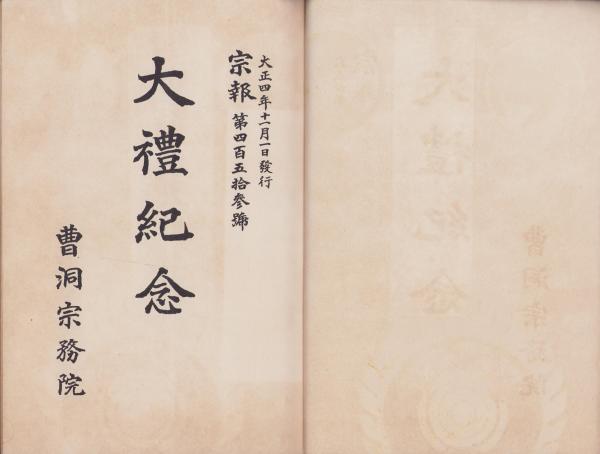 大正四年十一月一日發行
宗報 第四百五拾參號
大禮紀念
曹洞宗務院